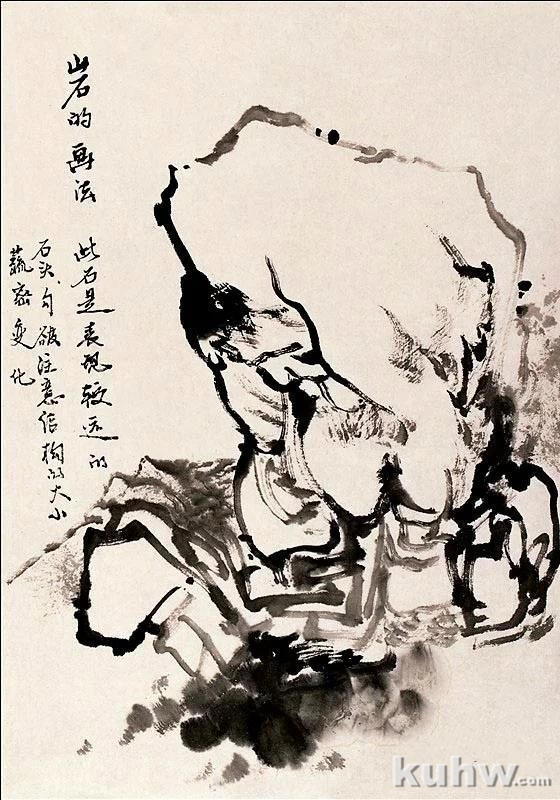 岩的画法 此石是表现较远的
石头,勾皴注意结构的大小
蔬密变化
kuhw.com